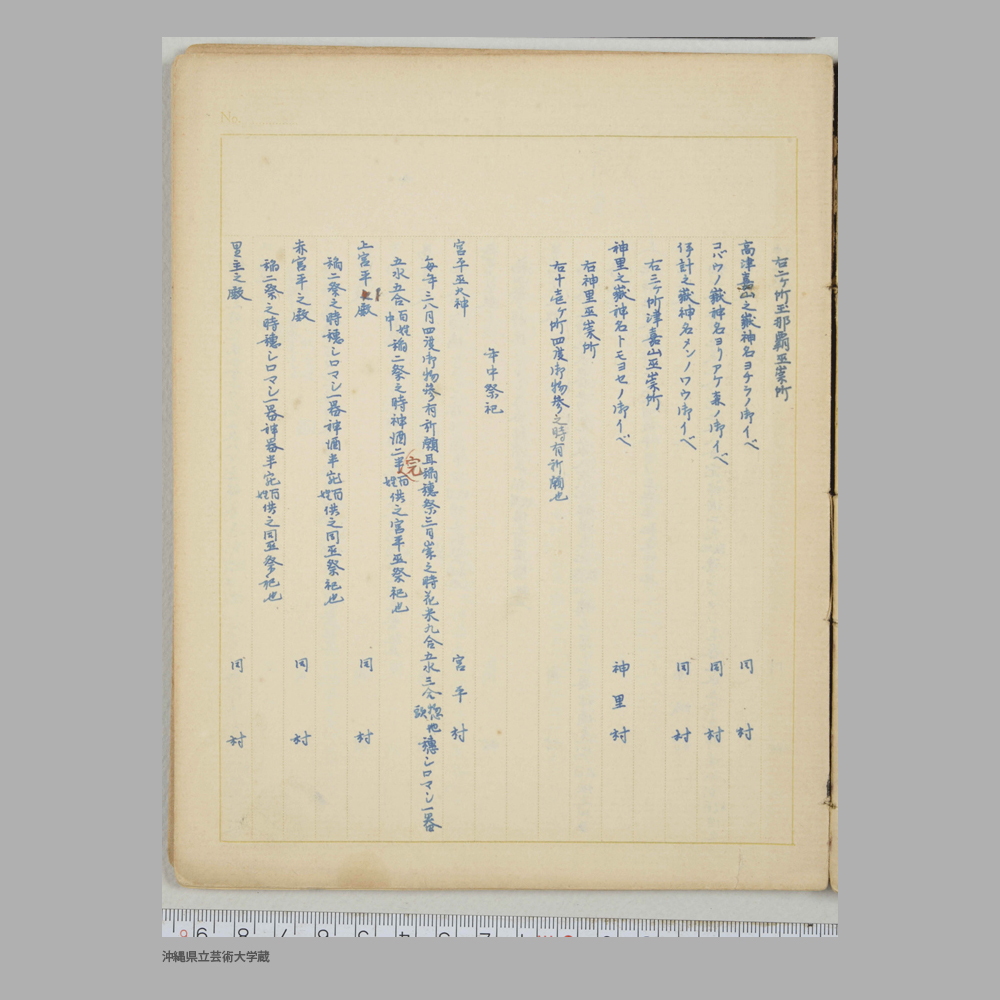 No.
右二ヶ所王那覇巫崇所
高津嘉山之嶽神名ヨチラノ御イベ 同村
コバウノ嶽神名ヨリアケ森ノ御イベ 同村
伊計之嶽神名メンノワウ御イベ 同村
右三ヶ所津嘉山巫崇所
神里之嶽神名トモヨセノ御イベ 神里村
右神里巫崇所
右十壱ヶ所四度御物参之時有祈願也
年中祭祀
宮平巫火神 宮平村
毎年三八月四度御物参有祈願且稲穂祭三日崇之時花米九合五水三合惣地頭穂シロマシ一器
五水五合百姓中稲二祭之時神酒二半完百姓供之宮平巫祭祀也
上宮平之殿 同村
稲二祭之時穂シロマシ一器神酒半完百姓供之同巫祭祀也
赤宮平之殿 同村
稲二祭之時穂シロマシ一器神器半完百姓供之同巫祭祀也
里主之殿 同村
沖縄県立芸術大学蔵
9 8 7 6 5 4 3 2